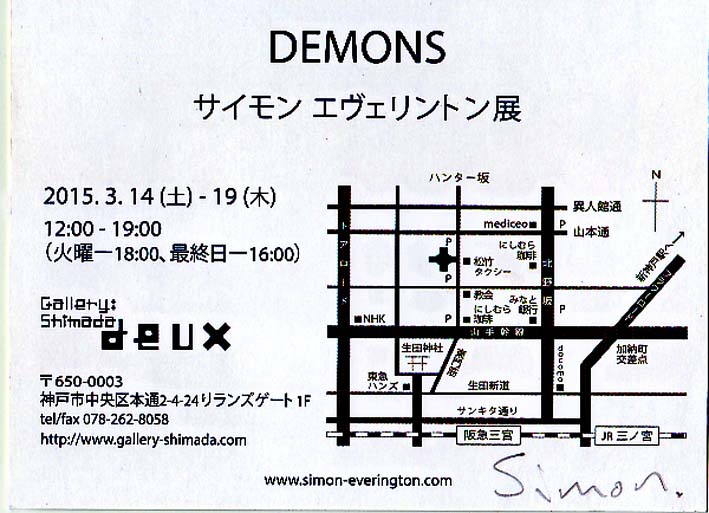 DEMONS
サイモン エヴェリントン展
2015. 3. 14 (土) - 19 (木)
12:00 - 19:00
(火曜ー18:00、最終日ー16:00)
Gallery:
Shimada
deux
〒650-0003
神戸市中央区本通2-4-24りランズゲート 1F
tel/fax 078-262-8058
http://www.gallery-shimada.com
www.simon-everington.com
Simon.
ハンター坂
N
異人館通
mediceo
P
山本通
トアロード
P
にしむら
珈琲
松竹
タクシー
北野坂
P
新神戸駅へ
フラワーロード
教会
みなと
銀行
にしむら
珈琲
P
P
NHK
山手幹線
生田神社
東門街
加納町
交差点
docomo
東急
ハンズ
生田新道
サンキタ通り
阪急三宮
JR 三ノ宮